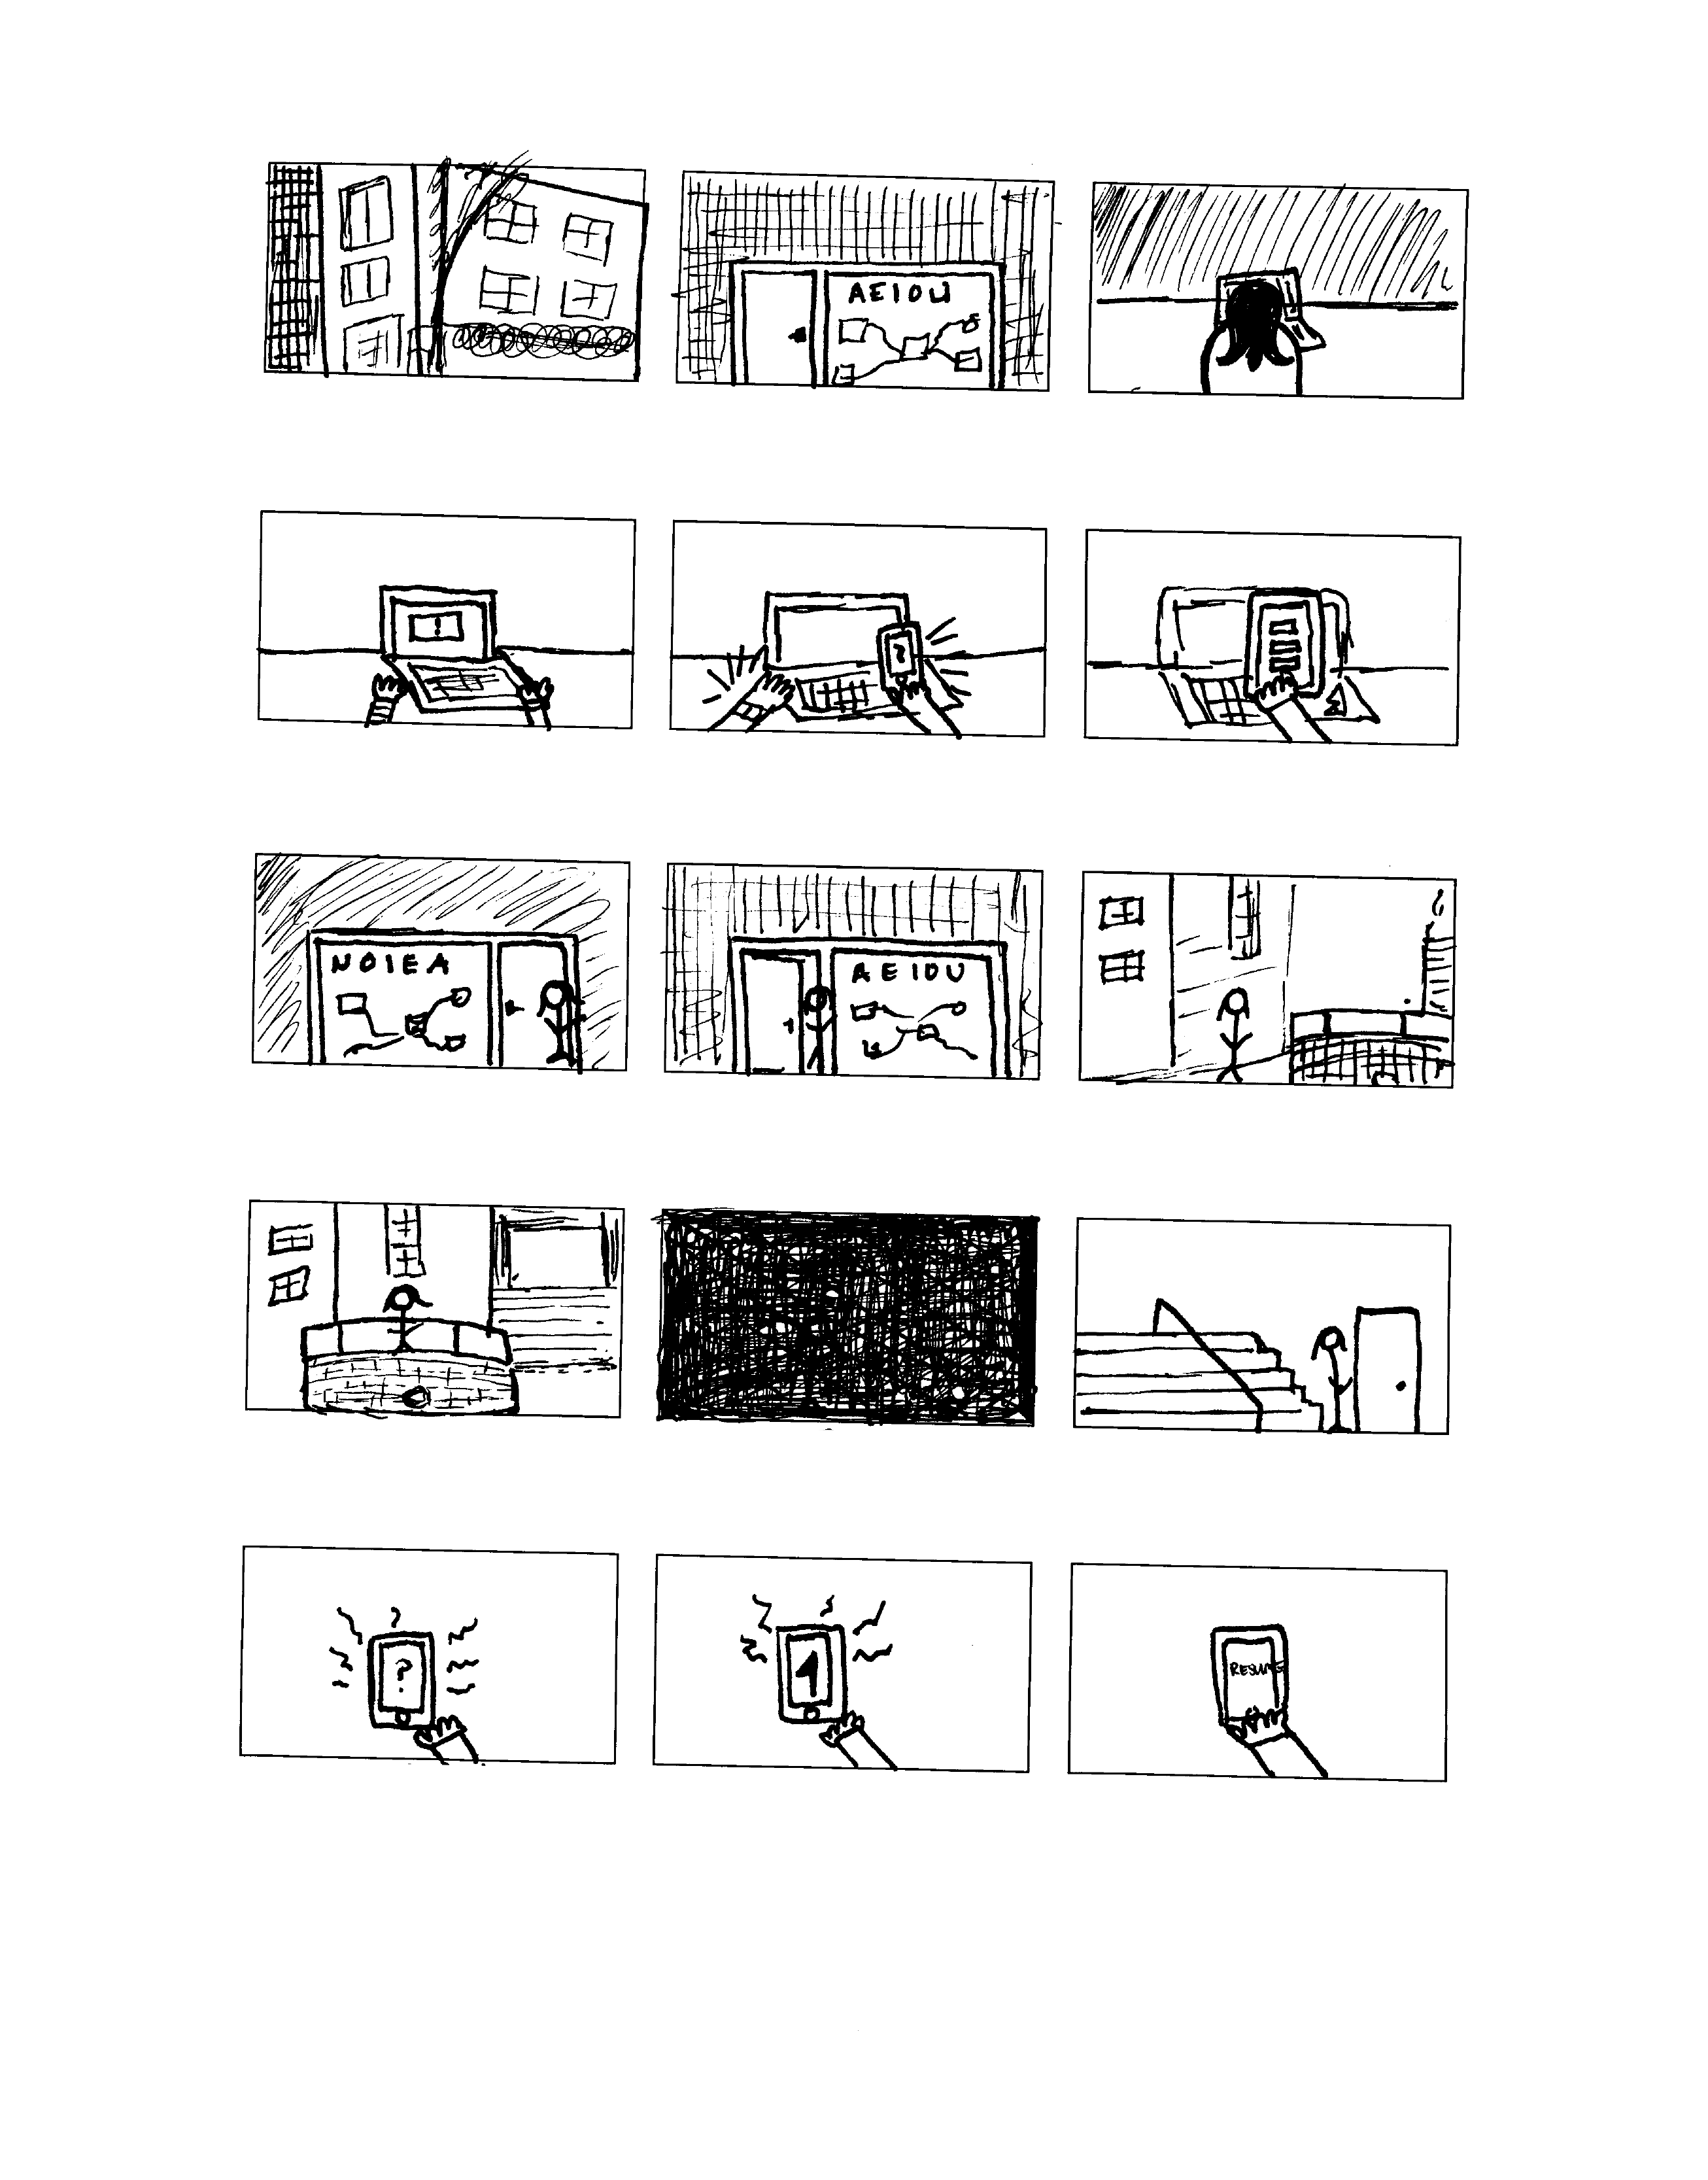 AEIOU
!
?
NOIEA
AEIOU
?
1
RESUME